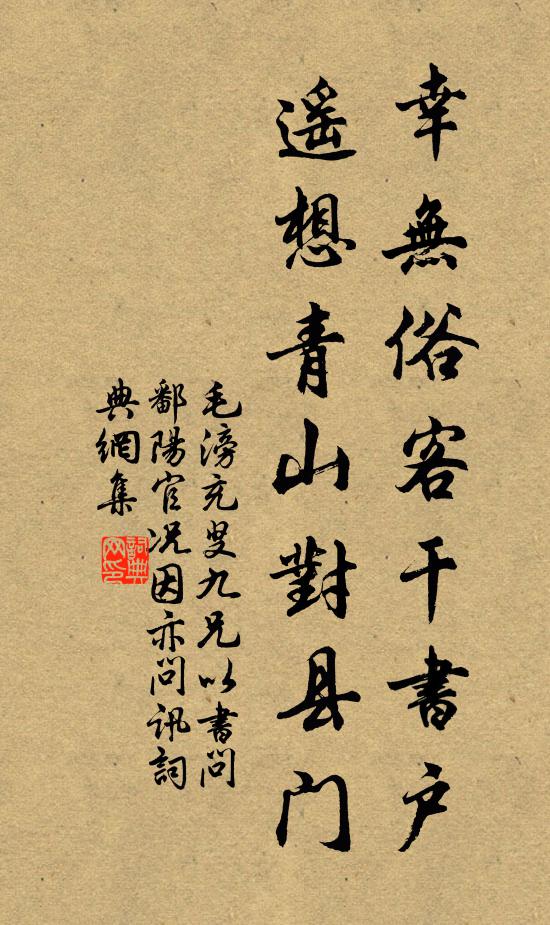 幸無俗客干書户
遥想青山對县门
毛滂充叟九兄以書問
鄱陽官况因亦問讯詞
典網集
詞典
网印